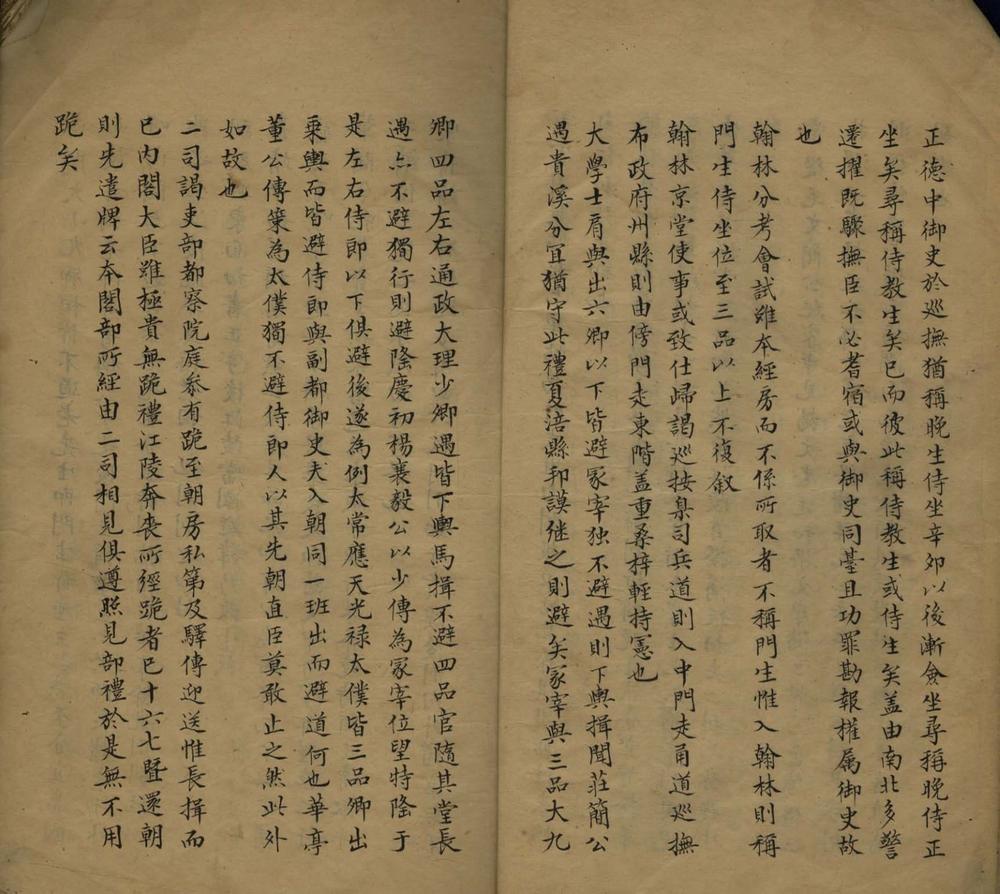 正德中御史於巡撫猶稱晚生侍坐辛夘以後漸僉坐尋稱晚侍正
坐矣尋稱侍教生矣已而彼此稱侍教生或侍生矣盖由南北多警
遷擢既驟撫臣不必耆宿或與御史同臺且功罪勘報權属御史故
也
翰林分考會試雖本經房而不係所取者不稱門生惟入翰林則稱
門生侍坐位至三品以上不復叙
翰林京堂使事或致仕歸謁巡按臬司兵道則入中門走甬道巡撫
布政府州縣則由傍門走東階盖重桑梓輕持憲也
大學士肩與出六卿以下皆避冢宰独不避遇則下輿揖聞莊簡公
遇貴溪分宜猶守此禮夏涪縣邦謨继之則避矣冢宰與三品大九
卿四品左右通政大理少卿遇皆下輿馬揖不避四品官隨其堂長
遇亦不避獨行則避隆慶初楊襄毅公以少傅為冡宰位望特隆于
是左右侍郎以下俱避後遂為例太常應天光禄太僕皆三品卿出
乗輿而皆避侍郎與副都御史夫入朝同一班出而避道何也華亭
董公傳策為太僕獨不避侍郎人以其先朝直臣莫敢止之然此外
如故也
二司謁吏部都察院庭叅有跪至朝房私第及驛傳迎送惟長揖而
已内閣大臣雖極貴無跪禮江陵奔丧所經跪者已十六七暨還朝
則先遣牌云本閣部所經由二司相見俱遵照見部禮於是無不用
跪矣